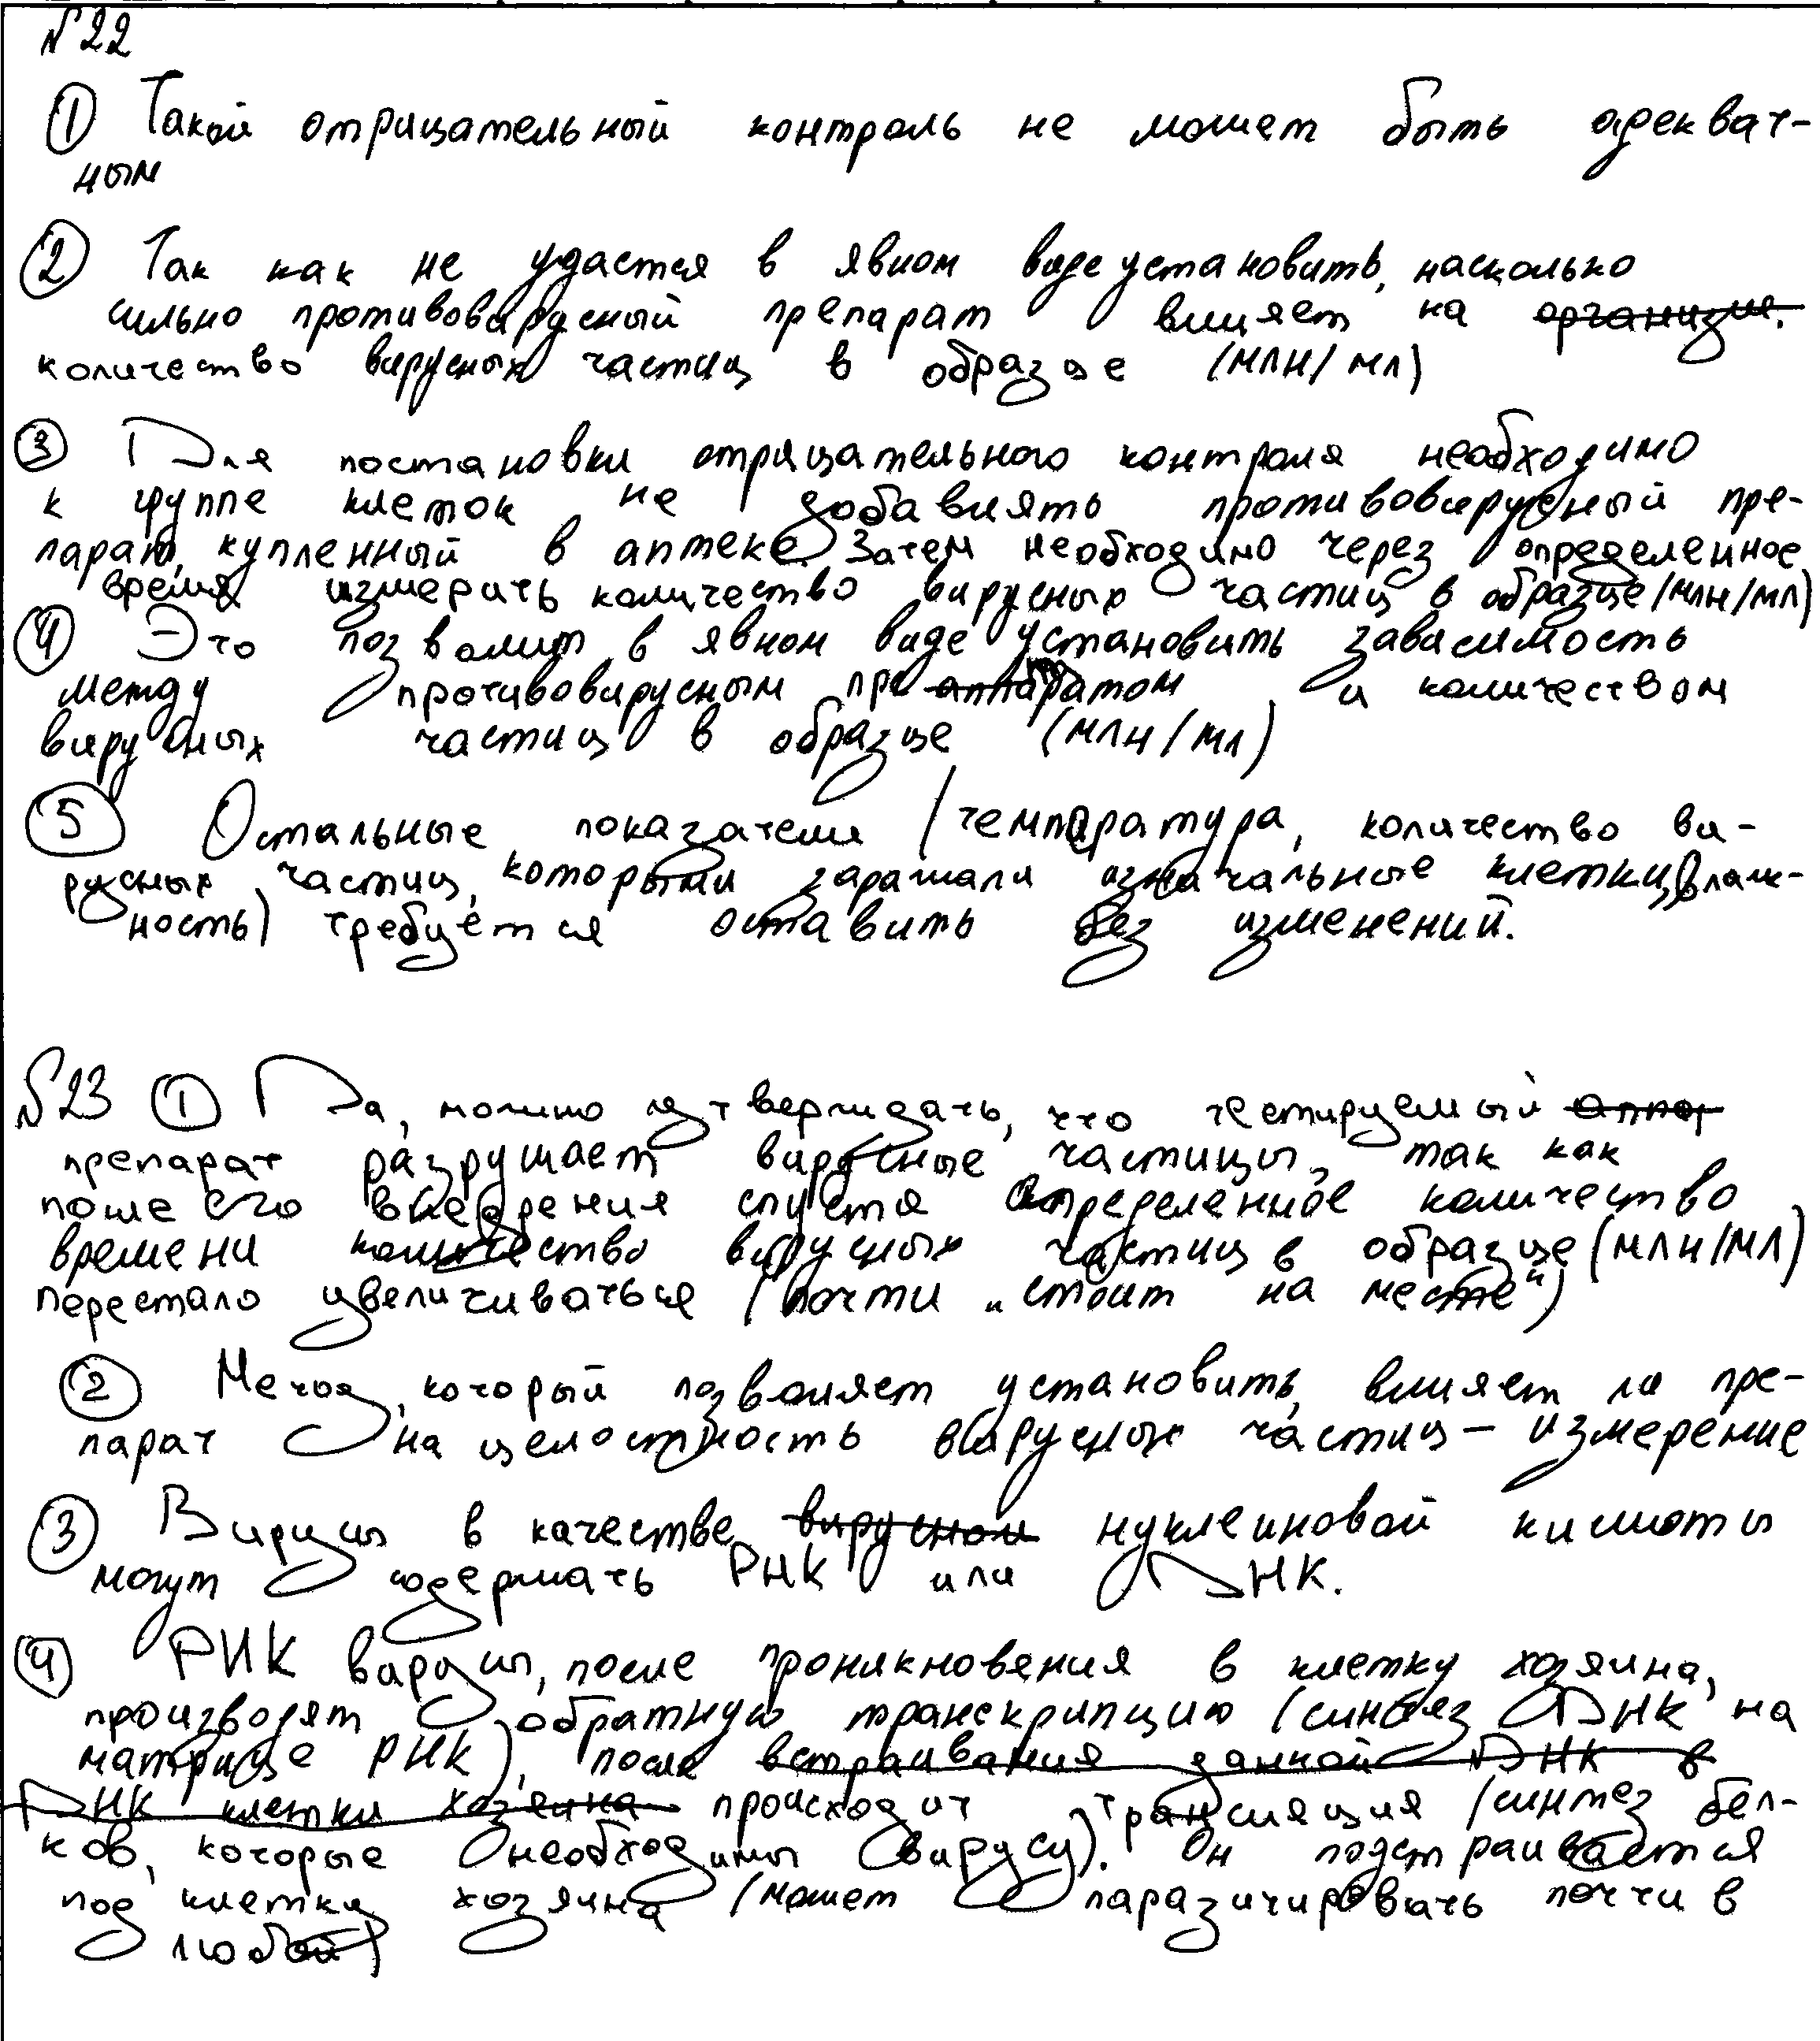 №22
① Такой отрицательный контроль не может быть адекват-
ным
② Так как не удастся в явном виде установить, насколько
сильно противовирусный препарат влияет на организм.
количество вирусных частиц в образце (млн/мл)
③ Для постановки отрицательного контроля необходимо
к группе клеток не добавлять противовирусный пре-
парат, купленный в аптеке. Затем необходимо через определенное
время измерить количество вирусных частиц в образце (млн/мл)
④ Это позволит в явном виде установить зависимость
между противовирусным препаратом и количеством
вирусных частиц в образце (млн/мл)
⑤ Остальные показатели (температура, количество ви-
русных частиц, которыми заражали изначальные клетки, влаж-
ность) требуется оставить без изменений.
№23 ① Да, можно утверждать, что тестируемый
препарат разрушает вирусные частицы, так как
после его внедрения спустя определенное количество
времени количество вирусных частиц в образце (млн/мл)
перестало увеличиваться (почти „стоит на месте")
② Метод, который позволяет установить, влияет ли пре-
парат на целостность вирусных частиц – измерение
③ Вирусы в качестве вирусной нуклеиновой кислоты
могут содержать РНК или ДНК.
④ РНК вирусы, после проникновения в клетку хозяина,
производят обратную транскрипцию (синтез ДНК на
матрице РНК), после встраивания данной ДНК в
ДНК клетки хозяина происходит трансляция (синтез бел-
ков, которые необходимы вирусу). Он подстраивается
под клетку хозяина (может паразитировать почти в
любой)